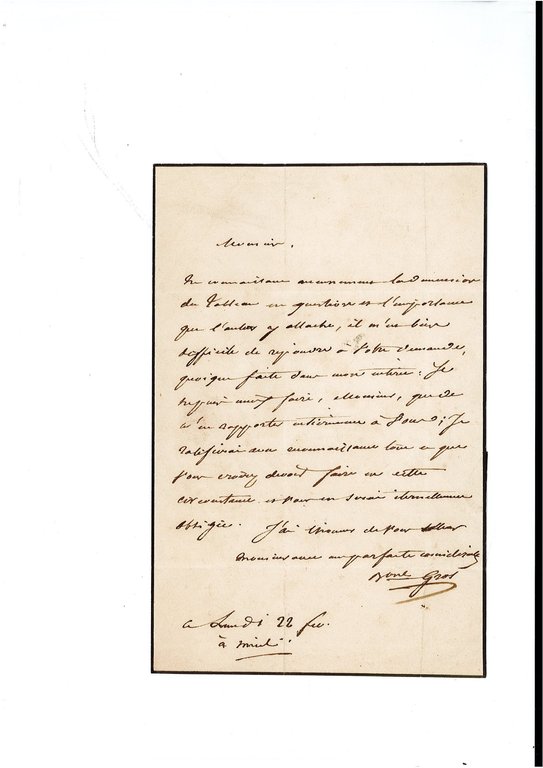 Monsieur,
Ne connaissant aucunement la dimension
du Tableau en question et l'importance
que l'auteur y attache, il m'est bien
difficile de répondre à votre demande,
quoique faite dans mon intérêt. Je
ne puis mieux faire, Monsieur, que de
m'en rapporter entièrement à vous; je
ratifierai avec reconnaissance tout ce que
vous croirez devoir faire en cette
circonstance et vous en serai éternellement
obligée. J'ai l'honneur de vous saluer
Monsieur avec une parfaite considération
Bonne Gros
ce Lundi 22 fev.
à midi.